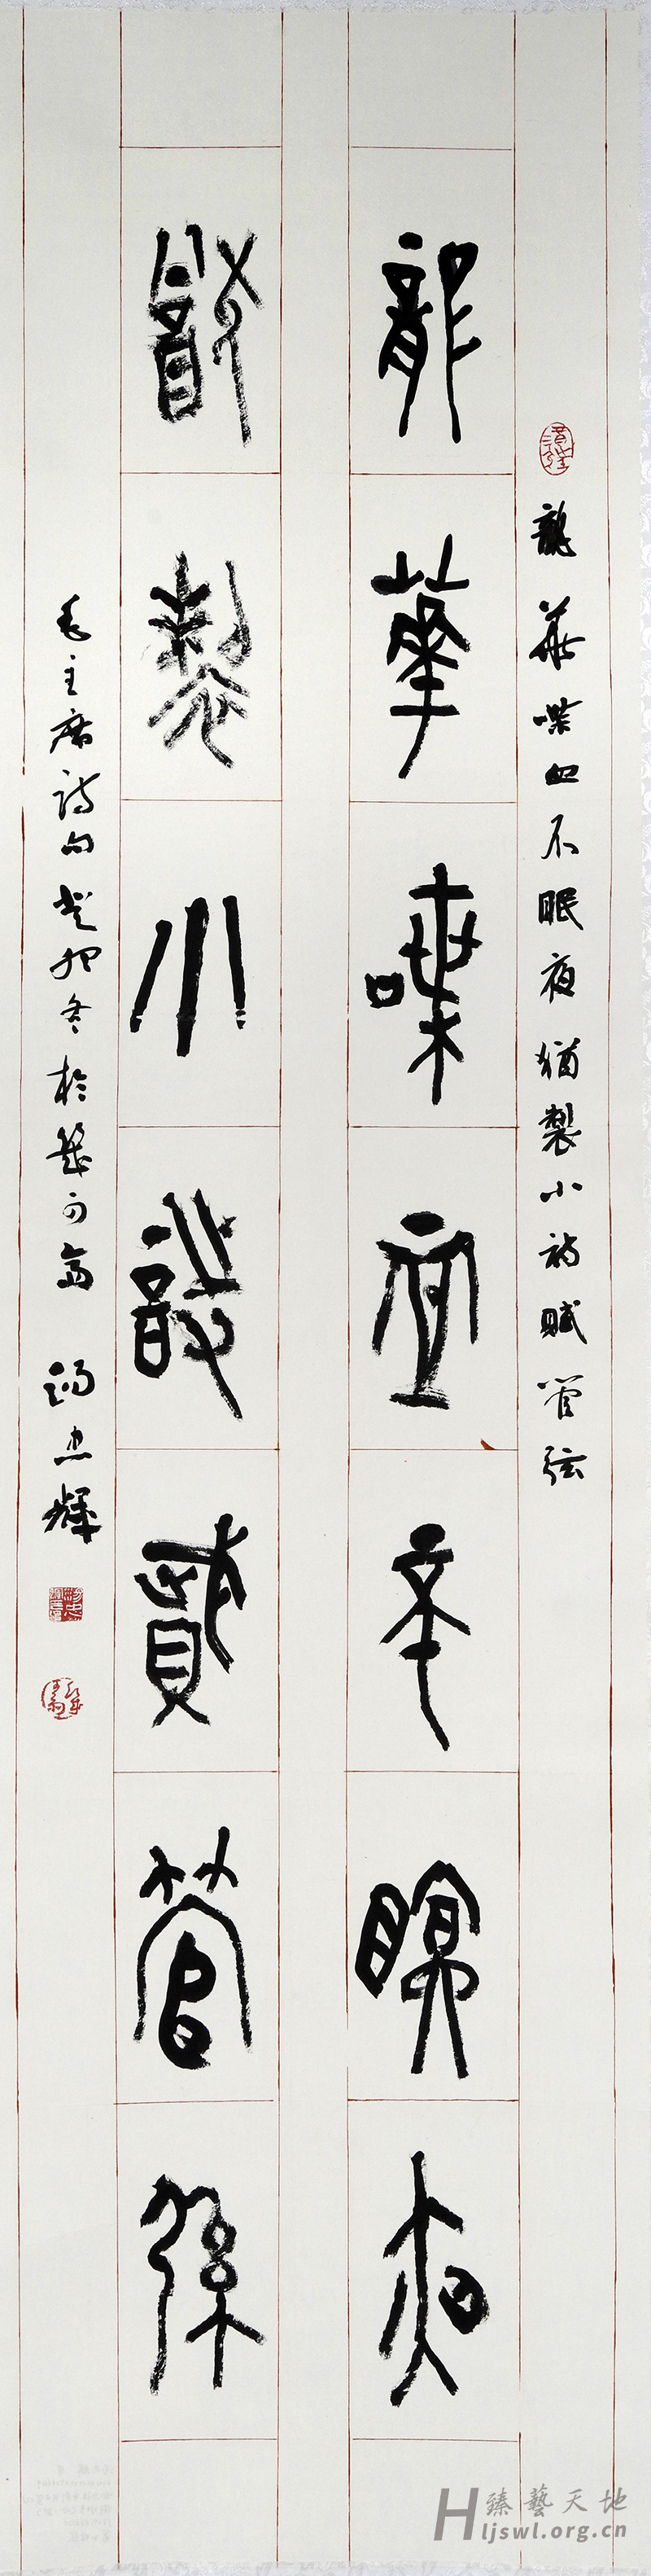 龍華喋血不眠夜猶製小詩賦管弦
龍華喋血不眠夜
猶製小詩賦管弦
毛主席詩句 於 忠輝
臻藝天地
Hljswl.org.cn